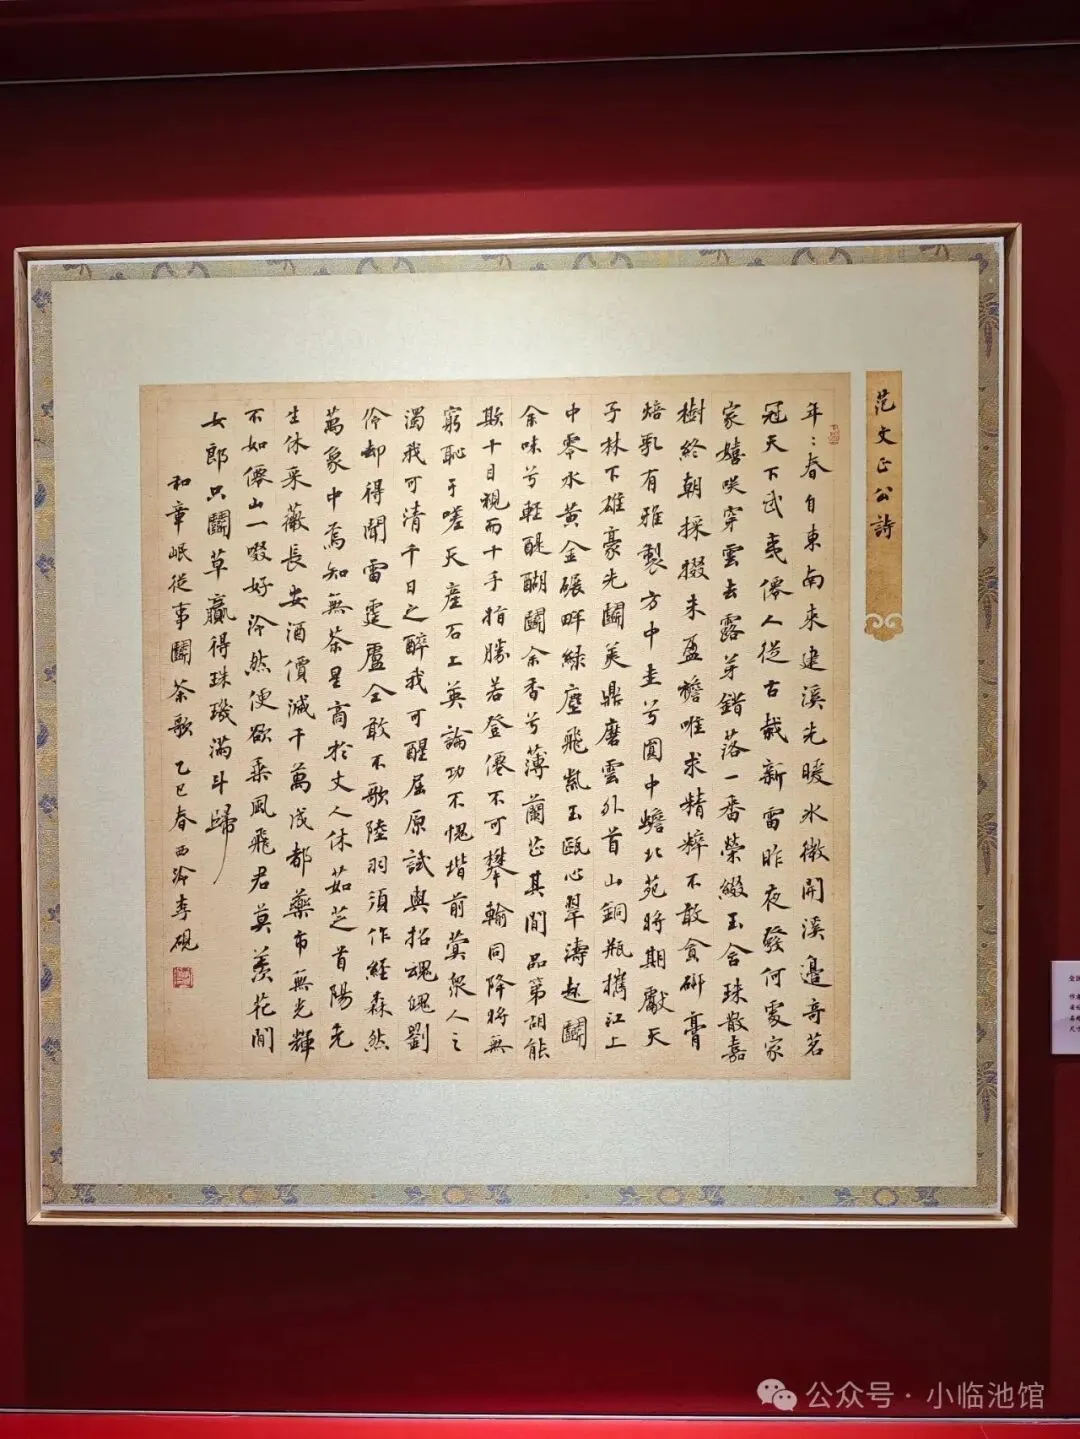 范文正公詩
年〻春自東南来建溪先暖氷微開溪邊奇茗
冠天下武夷僊人從古栽新雷昨夜發何處家
家嬉咲穿雲去露芽錯落一番榮綴玉含珠散嘉
樹終朝採掇未盈襜唯求精粹不敢貪研膏
焙乳有雅製方中圭兮圓中蟾北苑將期獻天
子林下雄豪先鬭美鼎磨雲外首山銅瓶攜江上
中零水黄金碾畔緑塵飛紫玉甌心翠濤起鬭
余味兮軽醍醐鬭余香兮薄蘭芷其間品第胡能
欺十目視而十手指勝若登僊不可攀輸同降將無
窮恥于嗟天產石上英論功不愧堦前蓂衆人之
濁我可清千日之醉我可醒屈原試與招魂魄劉
伶却得聞雷霆盧仝敢不歌陸羽須作経森然
萬象中焉知無茶星商於丈人休茹芝首陽先
生休采薇長安酒價減千萬成都藥市無光輝
不如僊山一啜好泠然便欲乘風飛君莫羨花間
女郎只鬭草贏得珠璣滿斗歸
和章岷從事鬭茶歌 乙巳春西泠李硯
公众号·小临池馆